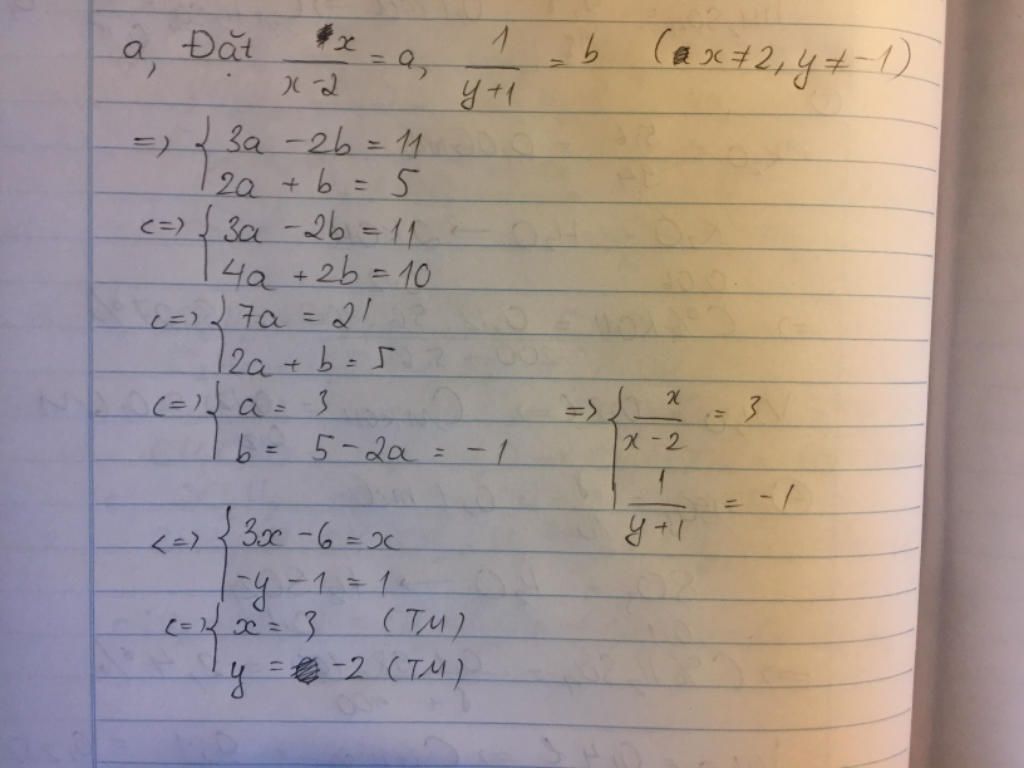 a, Đặt x/(x-2) = a, 1/(y+1) = b (x ≠ 2, y ≠ -1)
=> { 3a - 2b = 11
2a + b = 5
<=> { 3a - 2b = 11
4a + 2b = 10
<=> { 7a = 21
2a + b = 5
<=> { a = 3
b = 5 - 2a = -1
=> { x/(x-2) = 3
1/(y+1) = -1
<=> { 3x - 6 = x
-y - 1 = 1
<=> { x = 3 (TM)
y = -2 (TM)